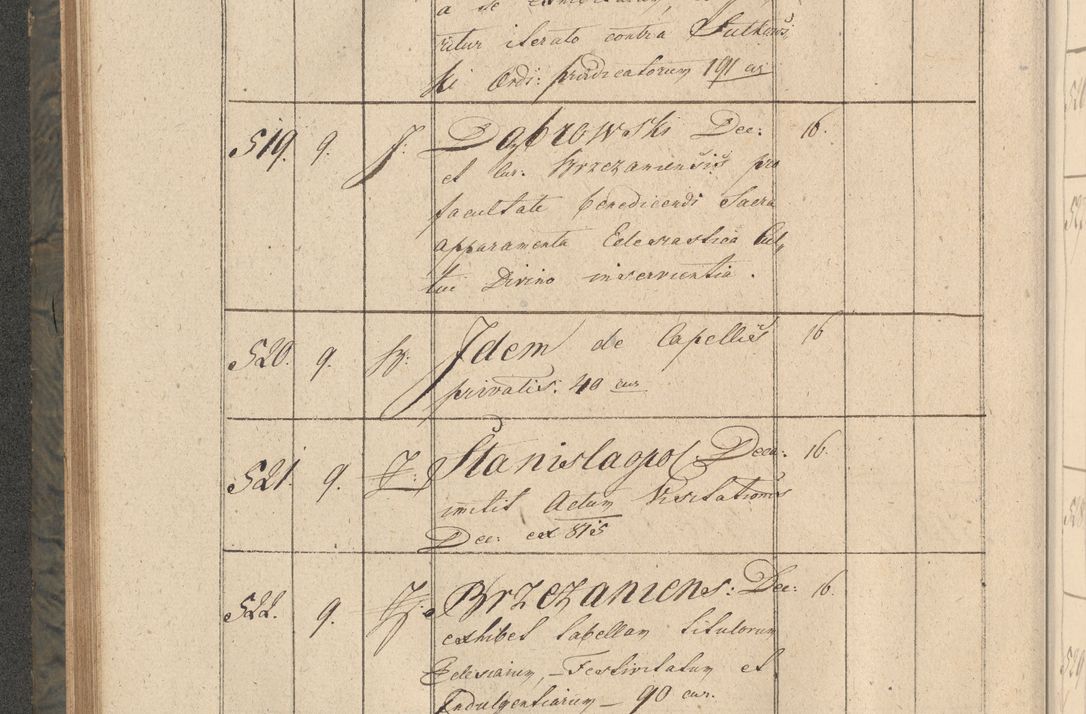 ritur iterato contra
ski Ordi: prædicatorum 191 cur
519. 9. J. Dąbrowski Dec: 16.
et Cur. Brzezaniensis pro
facultate benedicendi Sacra
apparamenta Eclesiastica Cul„
tui Divino inservientia.
520. 9. Idem de Capellis 16
privatis. 40 cur
521. 9. Stanislaopol. Deca. 16.
mittit Actum Visitationis
Dec: ex 815
522. 9. Brzezaniens: Dec: 16.
exhibet tabellam titulorum
Eclesiarum, Festivitatum et
Indulgentiarum 90 cur.